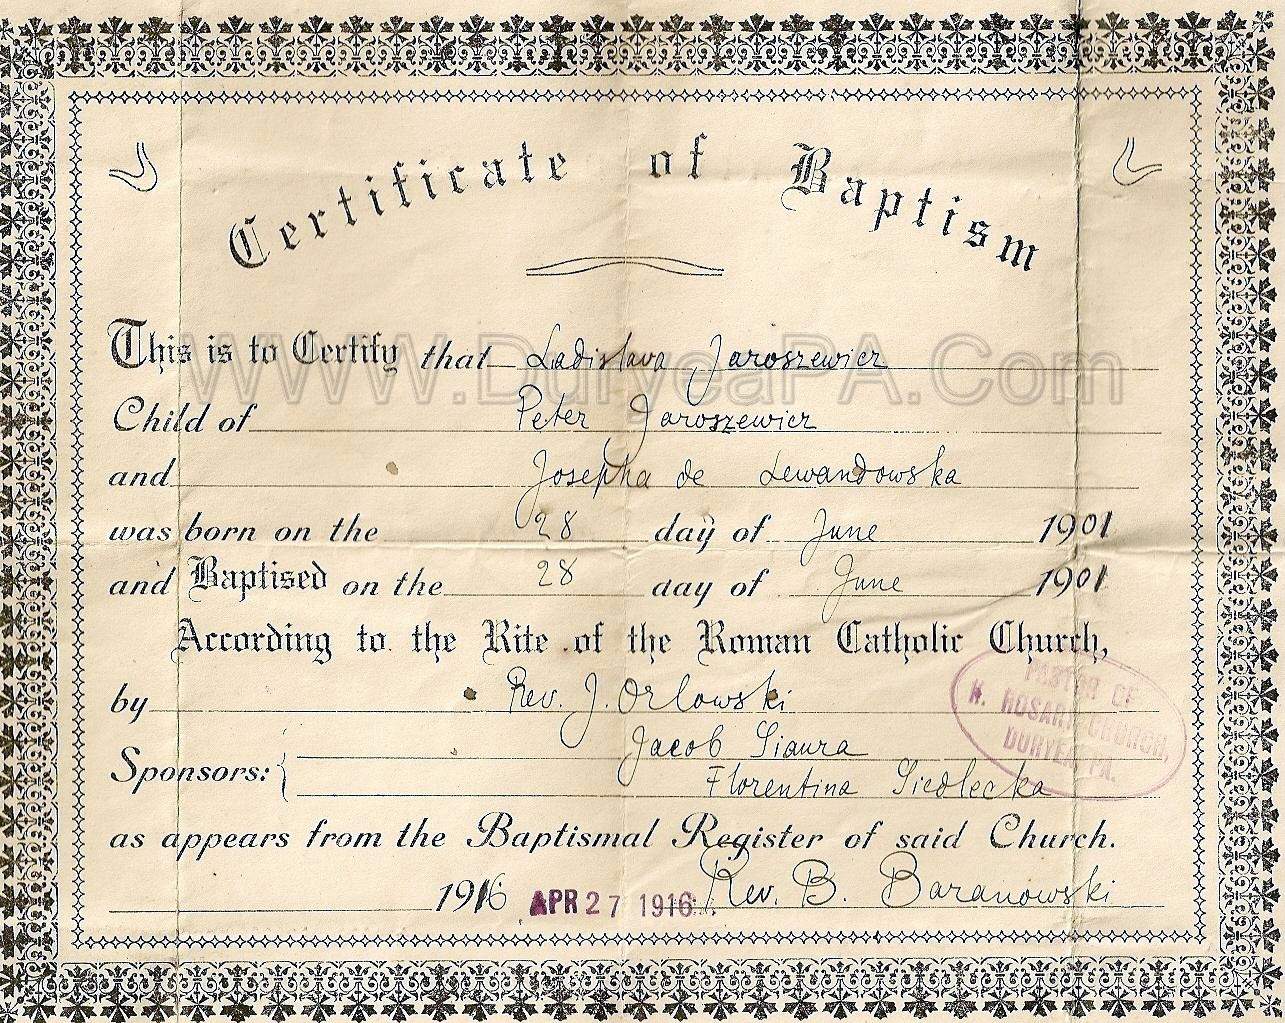 Certificate of Baptism
WWW.DuryeaPA.Com
This is to Certify that Ladislava Jaroszewicz
Child of Peter Jaroszewicz
and Josepha de Lewandowska
was born on the 28 day of June 1901
and Baptised on the 28 day of June 1901
According to the Rite of the Roman Catholic Church,
by Rev. J. Orlowski
PASTOR OF
H. ROSARY CHURCH,
DURYEA, PA.
Sponsors: Jacob Siaura
Florentina Siedlecka
as appears from the Baptismal Register of said Church.
1916 APR 27 1916 Rev. B. Baranowski